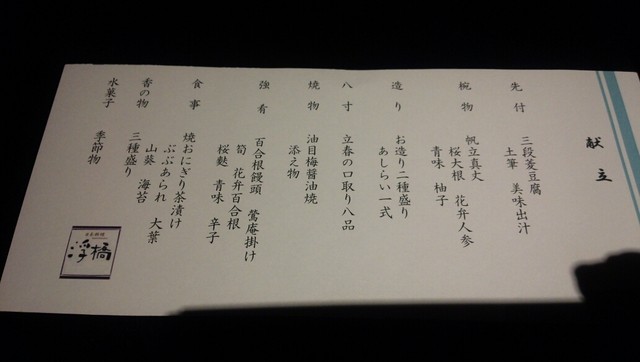 献立
先付
三段菱豆腐
土筆 美味出汁
椀物
帆立真丈
桜大根 花弁人参
青味 柚子
造り
お造り二種盛り
あしらい一式
八寸
立春の口取り八品
焼物
油目梅醤油焼
添え物
強肴
百合根饅頭 鶯庵掛け
筍 花弁百合根
桜麩 青味 辛子
食事
焼おにぎり茶漬け
ぶぶあられ 大葉
山葵 海苔
香の物
三種盛り
水菓子
季節物
浮橋